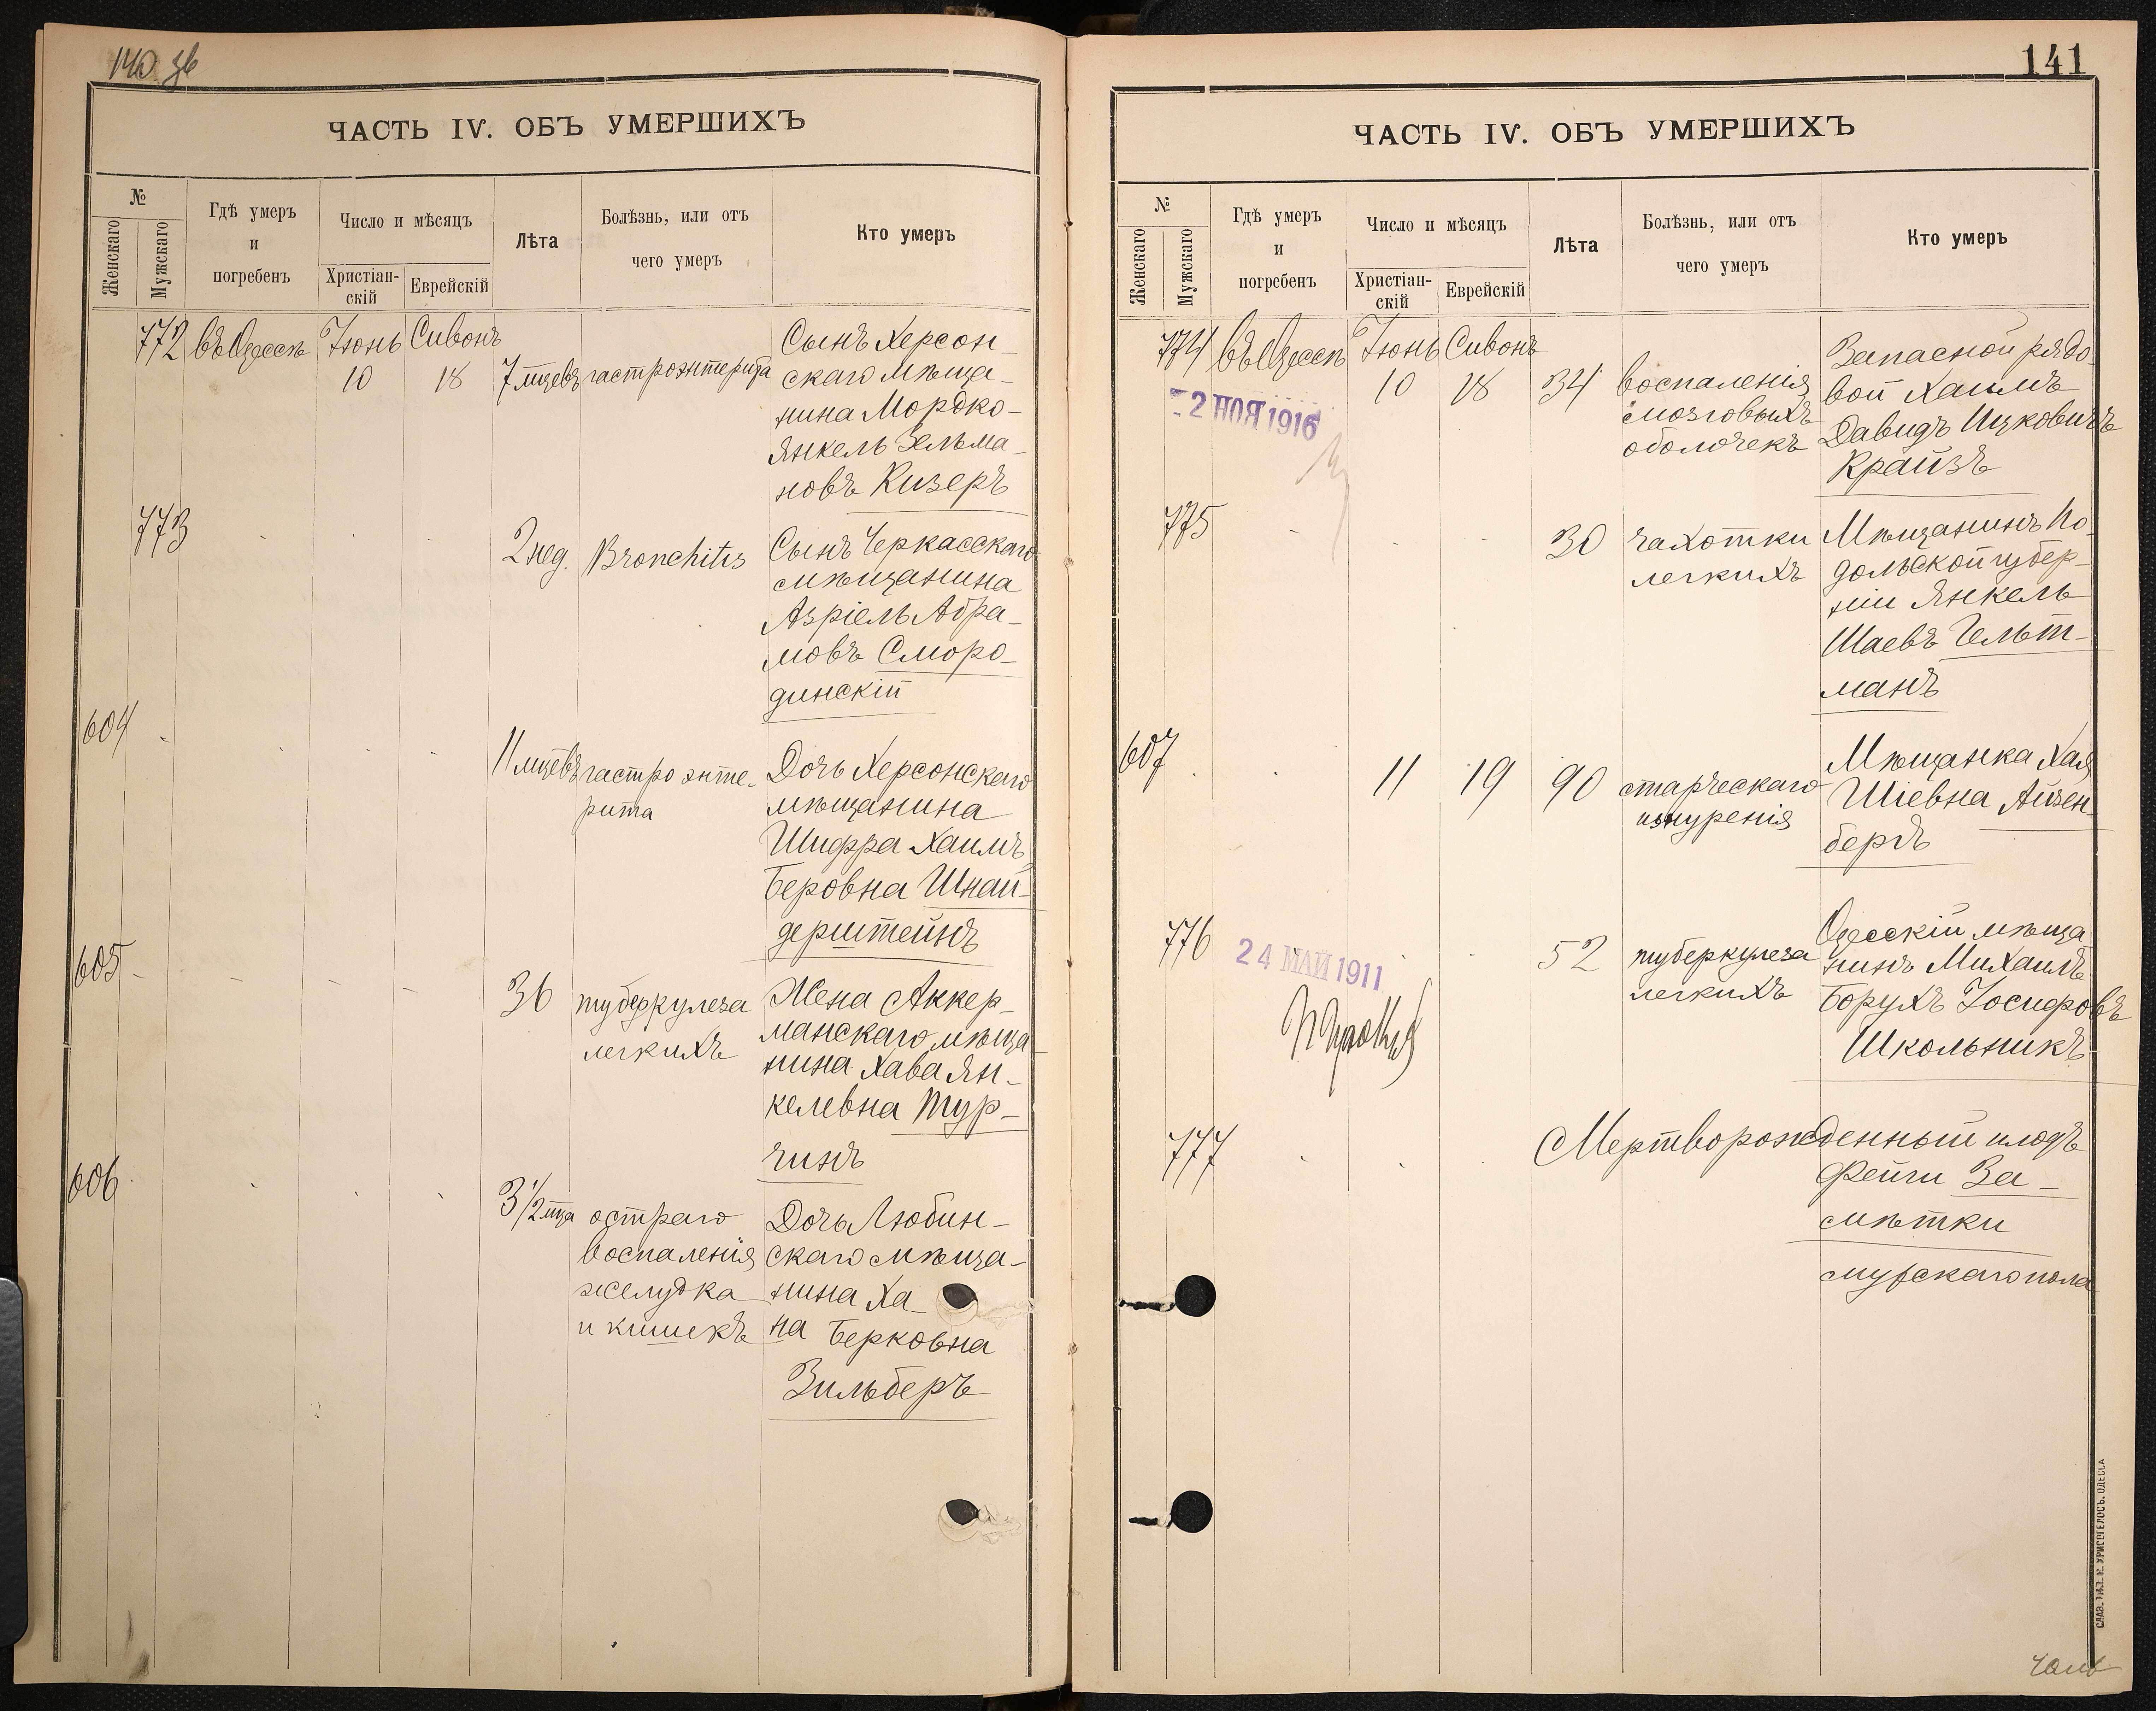 140 зв
ЧАСТЬ IV. ОБЪ УМЕРШИХЪ
№
Женскаго
Мужскаго
Гдѣ умеръ
и
погребенъ
Число и мѣсяцъ
Христіан-
скій
Еврейскій
Лѣта
Болѣзнь, или отъ
чего умеръ
Кто умеръ
772 въ Одессѣ Іюнь Сивонъ
10 18 7 мцевъ гастроэнтерита
Сынъ Херсон-
скаго мѣща-
нина Мордко-
Янкель Зельма-
новъ Кизеръ
773 2 нед. Bronchitis
Сынъ Черкасскаго
мѣщанина
Азріель Абра-
мовъ Сморо-
динскій
604 11 мцевъ гастро энте-
рита
Дочь Херсонскаго
мѣщанина
Шифра Хаимъ
Беровна Шнай-
дерштейнъ
605 36 туберкулеза
легкихъ
Жена Аккер-
манскаго мѣща
нина Хава Ян-
келевна Тур-
чинъ
606 3 1/2 мца остраго
воспаленія
желудка
и кишекъ
Дочь Любин-
скаго мѣща-
нина Ха-
на Берковна
Зильберъ
141
ЧАСТЬ IV. ОБЪ УМЕРШИХЪ
№
Женскаго
Мужскаго
Гдѣ умеръ
и
погребенъ
Число и мѣсяцъ
Христіан-
скій
Еврейскій
Лѣта
Болѣзнь, или отъ
чего умеръ
Кто умеръ
774 въ Одессѣ Іюнь Сивонъ
10 18 34 воспаленія
мозговыхъ
оболочекъ
Запасной рядо-
вой Хаимъ
Давидъ Ицковичъ
Крайзъ
2 НОЯ 1916
775 30 чахотки
легкихъ
Мѣщанинъ По-
дольской губер-
ніи Янкель
Шаевъ Гельт-
манъ
607 11 19 90 старческаго
изнуренія
Мѣщанка Хая
Шіевна Айзен-
бергъ
776 52 туберкулеза
легкихъ
Одесскій мѣща
нинъ Михаилъ
Борухъ Іосифовъ
Школьникъ
24 МАЙ 1911
777 Мертворожденный плодъ
Фейги За-
мѣтки
мужскаго пола
СЛАВ. ТИП. Н. ХРИСОГЕЛОСЪ. ОДЕССА